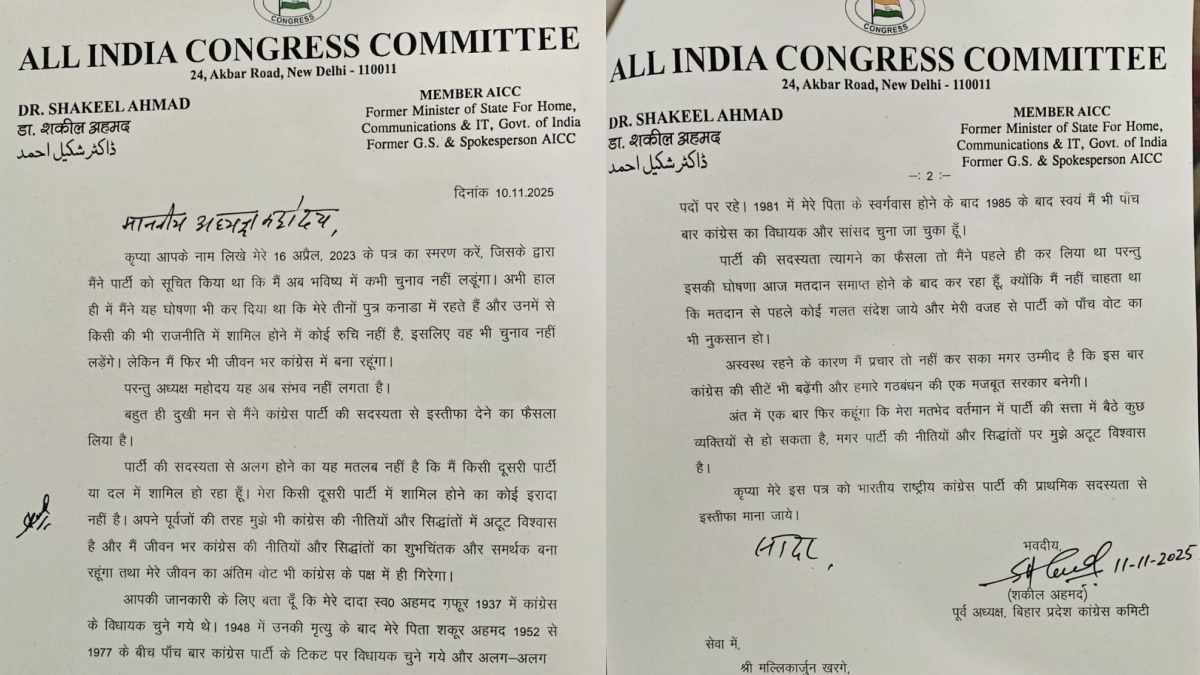 CONGRESS
ALL INDIA CONGRESS COMMITTEE
24, Akbar Road, New Delhi - 110011
DR. SHAKEEL AHMAD
डा. शकील अहमद
ڈاکٹر شکیل احمد
MEMBER AICC
Former Minister of State For Home,
Communications & IT, Govt. of India
Former G.S. & Spokesperson AICC
दिनांक 10.11.2025
माननीय अध्यक्ष महोदय,
कृप्या आपके नाम लिखे मेरे 16 अप्रैल, 2023 के पत्र का स्मरण करें, जिसके द्वारा
मैंने पार्टी को सूचित किया था कि मैं अब भविष्य में कभी चुनाव नहीं लडूंगा। अभी हाल
ही में मैंने यह घोषणा भी कर दिया था कि मेरे तीनों पुत्र कनाडा में रहते हैं और उनमें से
किसी की भी राजनीति में शामिल होने में कोई रुचि नहीं है, इसलिए वह भी चुनाव नहीं
लड़ेंगे। लेकिन मैं फिर भी जीवन भर कांग्रेस में बना रहूंगा।
परन्तु अध्यक्ष महोदय यह अब संभव नहीं लगता है।
बहुत ही दुखी मन से मैंने कांग्रेस पार्टी की सदस्यता से इस्तीफा देने का फैसला
लिया है।
पार्टी की सदस्यता से अलग होने का यह मतलब नहीं है कि मैं किसी दूसरी पार्टी
या दल में शामिल हो रहा हूँ। मेरा किसी दूसरी पार्टी में शामिल होने का कोई इरादा
नहीं है। अपने पूर्वजों की तरह मुझे भी कांग्रेस की नीतियों और सिद्धांतों में अटूट विश्वास
है और मैं जीवन भर कांग्रेस की नीतियों और सिद्धांतों का शुभचिंतक और समर्थक बना
रहूंगा तथा मेरे जीवन का अंतिम वोट भी कांग्रेस के पक्ष में ही गिरेगा।
आपकी जानकारी के लिए बता दूँ कि मेरे दादा स्व0 अहमद ग़फूर 1937 में कांग्रेस
के विधायक चुने गये थे। 1948 में उनकी मृत्यु के बाद मेरे पिता शकूर अहमद 1952 से
1977 के बीच पाँच बार कांग्रेस पार्टी के टिकट पर विधायक चुने गये और अलग–अलग
CONGRESS
ALL INDIA CONGRESS COMMITTEE
24, Akbar Road, New Delhi - 110011
DR. SHAKEEL AHMAD
डा. शकील अहमद
ڈاکٹر شکیل احمد
MEMBER AICC
Former Minister of State For Home,
Communications & IT, Govt. of India
Former G.S. & Spokesperson AICC
–: 2 :–
पदों पर रहे। 1981 में मेरे पिता के स्वर्गवास होने के बाद 1985 के बाद स्वयं मैं भी पाँच
बार कांग्रेस का विधायक और सांसद चुना जा चुका हूँ।
पार्टी की सदस्यता त्यागने का फैसला तो मैंने पहले ही कर लिया था परन्तु
इसकी घोषणा आज मतदान समाप्त होने के बाद कर रहा हूँ, क्योंकि मैं नहीं चाहता था
कि मतदान से पहले कोई गलत संदेश जाये और मेरी वजह से पार्टी को पाँच वोट का
भी नुकसान हो।
अस्वस्थ रहने के कारण मैं प्रचार तो नहीं कर सका मगर उम्मीद है कि इस बार
कांग्रेस की सीटें भी बढ़ेंगी और हमारे गठबंधन की एक मजबूत सरकार बनेगी।
अंत में एक बार फिर कहूंगा कि मेरा मतभेद वर्तमान में पार्टी की सत्ता में बैठे कुछ
व्यक्तियों से हो सकता है, मगर पार्टी की नीतियों और सिद्धांतों पर मुझे अटूट विश्वास
है।
कृप्या मेरे इस पत्र को भारतीय राष्ट्रीय कांग्रेस पार्टी की प्राथमिक सदस्यता से
इस्तीफा माना जाये।
सादर,
भवदीय,
11-11-2025
(शकील अहमद)
पूर्व अध्यक्ष, बिहार प्रदेश कांग्रेस कमिटी
सेवा में,
श्री मल्लिकार्जुन खरगे,